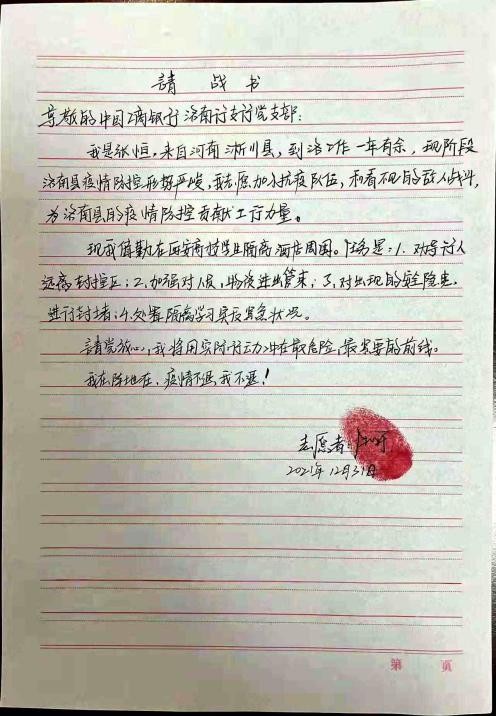 請战书
尊敬的中国工商银行洛南支行党支部:
我是张恒,来自河南淅川县,到洛工作一年有余,现阶段
洛南县疫情防控形势严峻,我志愿加入抗疫队伍,和看不见的敌人战斗,
为洛南县的疫情防控贡献工行力量。
现我值勤在西安商技学业隔离酒店周围。任务是:1.劝导行人
远离封控区;2.加强对人员,物资进出管束;3.对出现的安全隐患
进行封堵;4.处置隔离学习员应紧急状况。
請党放心,我将用实际行动冲在最危险,最需要的前线。
我在阵地在,疫情不退,我不退!
志愿者:
2021年12月31日
第 页